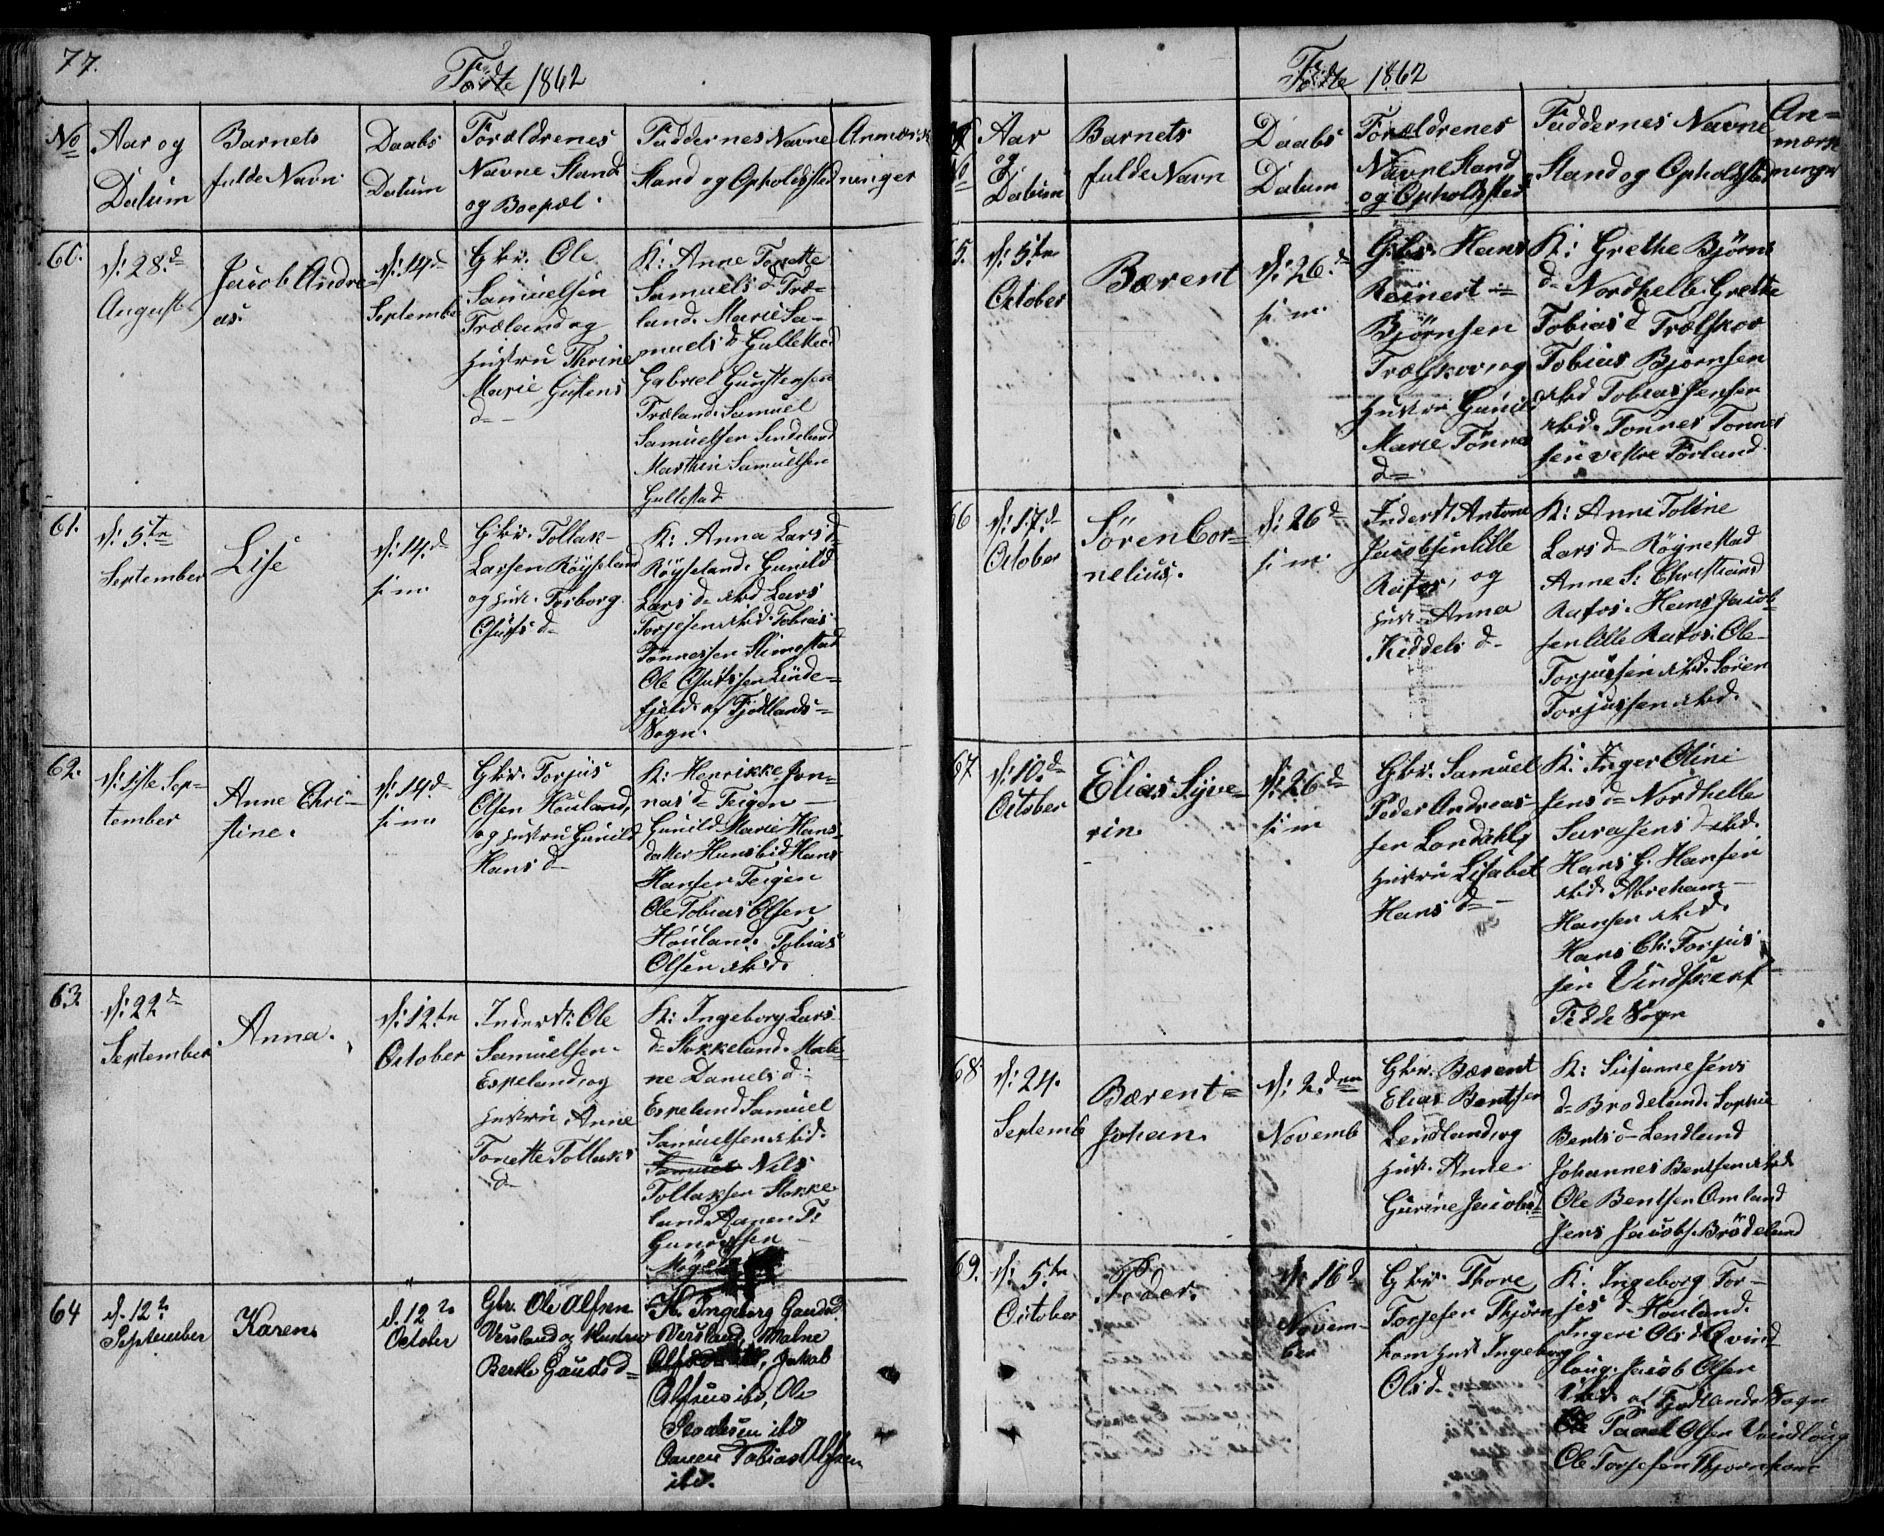 77.
Fødte 1862
No
Aar og
Datum
Barnets
fulde Navn
Daabs
Datum
Forældrenes
Navne Stand
og Boepæl.
Faddernes Navne
Stand og Opholdssted
Anmærk
ninger
60.
d: 28.d
August
Jacob Andre-
as.
d: 14.d
Septemb
Gbr. Ole
Samuelsen
Træland og
Hustru Thrine
Marie Gustens
d-
K: Anne Tonette
Samuels d Træ-
land. Marie Sa-
muels d Gullestad
Gabriel Gunstensen
Træland. Samuel
Samuelsen Sindeland
Marthin Samuelsen
Gullestad
61.
d: 5.te
September
Lise
d: 14.d
s: m.
Gbr. Tollak
Larsen Röyseland
og Hust. Torborg
Osufs d-
K: Anna Lars d-
Röyseland. Gunild
Lars d- ibd Lars
Torjesen ibd. Tobias
Tönnessen Stimestad
Ole Osufssen Linde-
fjeld af Fjotlands-
Sogn.
62.
d: 1ste Sep-
tember
Anne Chri-
stine.
d: 14.d
s: m.
Gbr. Torjus
Olsen Houland
og Hustru Gunild
Hans d-
K: Henrikke Jon-
nas d- Teigen
Gunild Marie Hans-
datter Hunsbid. Hans
Hansen Teigen
Ole Tobias Olsen
Houland. Tobias
Olsen ibid.
63.
d: 22d
September
Anna.
d: 12.te
October
Inderst. Ole
Samuelsen
Espeland og
Hustru Anne
Tonette Tollaks
d-
K: Ingeborg Lars
d- Stokkeland. Male-
ne Daniels d-
Espeland Samuel
Samuelsen ibid.
Samuel Nils
Tollaksen Stokke-
land. Aanen T:
Gunersen
64
d. 12te
September
Karen.
d. 12te
October
Gbr. Ole Alfsen
Versland og Hustru
Berthe Gauds d-
K. Ingeborg Gaudsd.
Versland, Malne
Jakob
Alfsen ibd, Ole
ibd
Aanen Tobias Alfsen
ibd.
Fødte 1862
No
Aar
og
Datum
Barnets
fulde Navn
Daabs
Datum
Forældrenes
Navne Stand
og Opholdssted
Faddernes Navne
Stand og Opholdssted
An-
mærk
ninger
5.
d: 5.te
October
Bærent
d: 26.d
s: m.
Gbr. Hans
Reinert
Bjørnsen
Trælskov og
Hustru Gunild
Marie Tønnes
d-
K: Grethe Bjørns
d- Nordhelle. Grethe
Tobias d Trælskov
Tobias Bjørnsen
ibid Tobias Jensen
ibid. Tønnes Tønnes
sen vestre Førland.
66
d: 17.d
October
Sören Cor-
nelius.
d: 26d
s: m.
Inderst Antone
Jacobsen lille
Rafos, og
Hust. Anna
Kiddels d-
K: Anne Toline
Lars d- Røgnestad
Anne S: Christians
Rafos. Hans Jacob-
sen lille Rafos. Ole
Torjussen ibd. Sören
Torjussen ibd.
67
d: 10.d
October
Elias Syve-
rin.
d: 26d
s: m
Gbr. Samuel
Peder Andreas
sen Londahl og
Hustru Lisabet
Hans d-
K: Inger Olini
Jens d- Nordhelle
Sara Jens d ibd.
Hans G. Hansen
ibd. Abreham
Hansen ibd.
Hans Ch: Torjus
sen
Fedde Sogn
68.
d: 24.
Septemb
Bærent
Johan.
d: 2.den
Novemb
Gbr. Bærent
Elias Bentsen
Lendland og
Hust. Anne
Gurine Jacobs d
K: Susanne Jens
d- Brødeland. Sophie
Bents d- Lendland
Johannes Bentsen ibd
Ole Bentsen Omland
Jens Jacobs. Brødeland
69.
d: 5.te
October
Peder.
d: 16d
Novem-
ber
Gbr. Thore
Torjesen Thjørn
hom Hust Ingeborg
Ols d.
K: Ingeborg Tor-
jes d- Houland.
Ingeri Ols d Qvind-
laug. Jacob Olsen
ibid. af Fjotlands Sogn
Paael Olsen Qvindlaug
Ole Torjesen Thjornhom